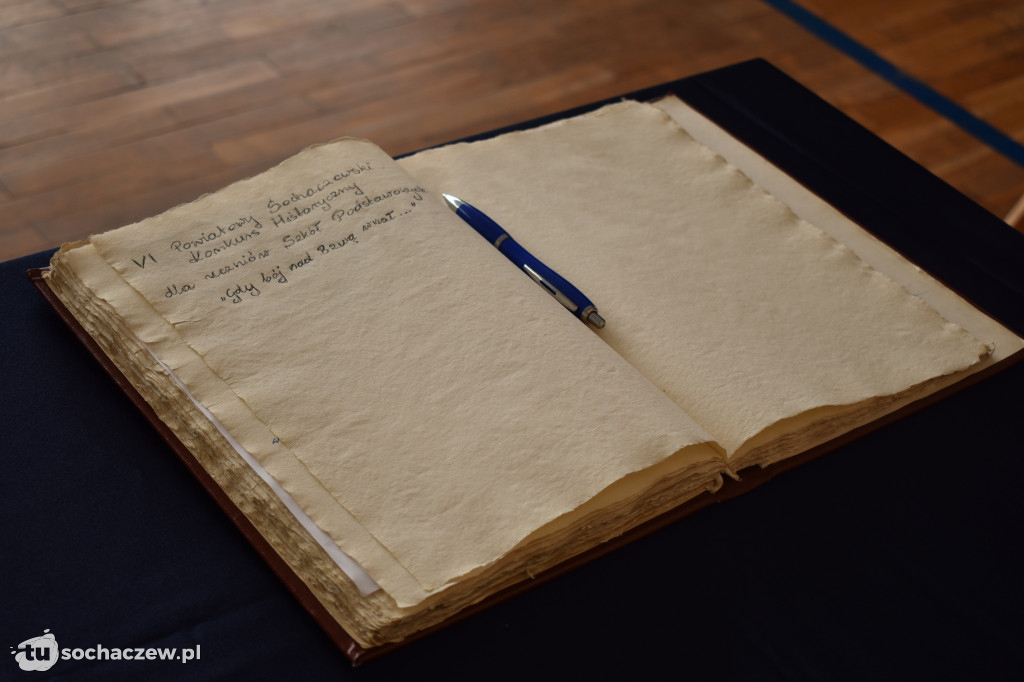 VI Powiatowy Sochaczewski
Konkurs Historyczny
dla uczniów Szkół Podstawowych
"Gdy bój nad Bzurą wrzał..."
tusochaczew.pl